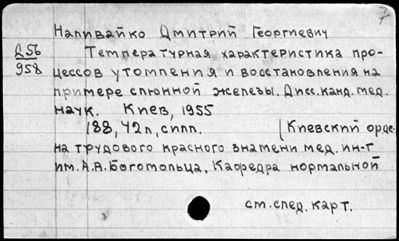 Наливайко Дмитрий Георгиевич
Д56
958
Температурная характеристика про-
цессов утомления и восстановления на
примере слюнной железы. Дисс. канд. мед.
наук. Киев, 1955
188, 42 л, с илл. (Киевский орде-
на трудового красного знамени мед. ин-т
им. А.А. Богомольца, Кафедра нормальной
см. след. карт.